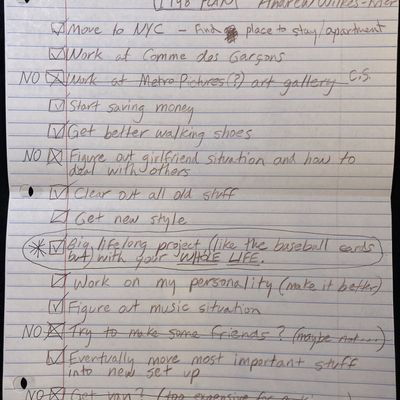 1998 PLAN Andrew Wilkes-Krier
Move to NYC - Find place to stay/apartment
Work at Comme des Garçons
NO Work at Metro Pictures(?) art gallery C.S.
Start saving money
Get better walking shoes
NO Figure out girlfriend situation and how to
deal with others
Clear out all old stuff
Get new style
Big lifelong project (like the baseball cards
but) with your WHOLE LIFE.
Work on my personality (make it better)
Figure out music situation
NO Try to make some friends? (maybe not...)
Eventually move most important stuff
into new set up
NO Get van? (too expensive for